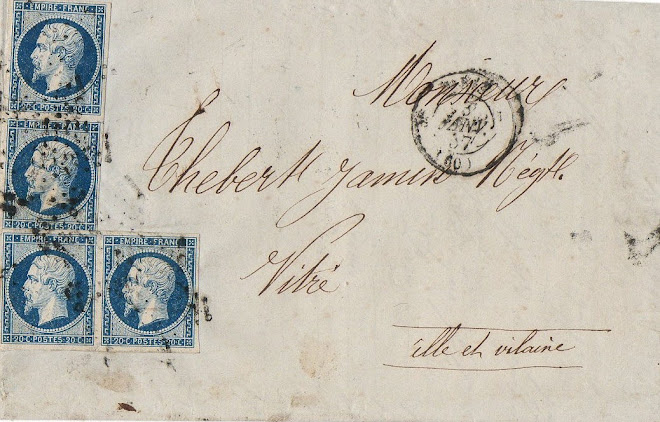 EMPIRE FRANC
20 C POSTES 20 C
EMPIRE FRANC
20 C POSTES 20 C
EMPIRE FRANC
20 C POSTES 20 C
EMPIRE FRANC
20 C POSTES 20 C
Monsieur
JANV.
57
(60)
Thebert Jamin Négt.
Vitré
ille et vilaine